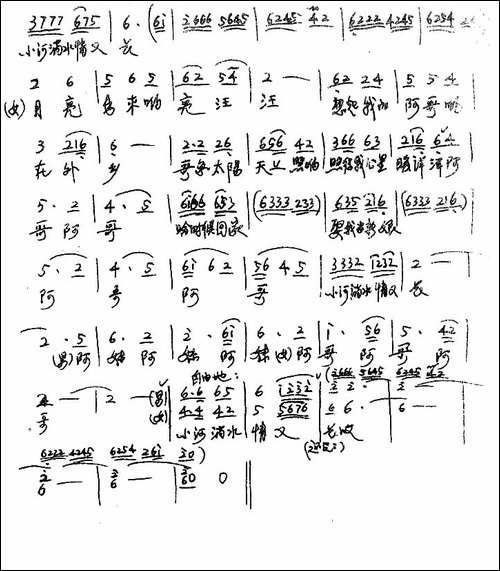 3777 675 | 6· (6i | 2666 5645 | 6245· 42 | 6222 4245 | 6254 26
小河淌水情义 长
2 6 | 5 6 5 | 62 54 | 2 — | 62 24 | 5 5 4
(女) 月 亮 出 来哟 亮 汪 汪 想起我的 阿哥哟
3 216 | 6 — | 2·2 26 | 656 42 | 366 63 | 216 64
在 外 乡 哥像太阳 天上 照哟 照得我心里 暖洋洋阿
5· 2 | 4· 5 | 6166 653 | (6333 233) | 635 216 | (6333 216)
哥 阿 哥 啥时候回家 娶我
5· 2 | 4· 5 | 6i 6 2 | 56 4 5 | 3332 1232 | 2 —
阿 哥 阿 哥 小河淌水情义 长
2· 5 | 6· 2 | 2· 6i | 6· 2 | i· 56 | 5· 42
(男)阿 妹 阿 妹 阿 妹 (女)阿 哥 阿 哥 阿
自由地: (2666 5645 6245 42
2 — | 2 — | (男) 6·6 65 | 6 1232 | 2· 2· | 2
哥 (女) 44 42 | 5 5676 | 6 6· | 6 —
小河淌水 情 义 长
6222 4245 6254 26i 30)
2 — | 3 — | 3
6 — | 6 — | 60 0 ‖